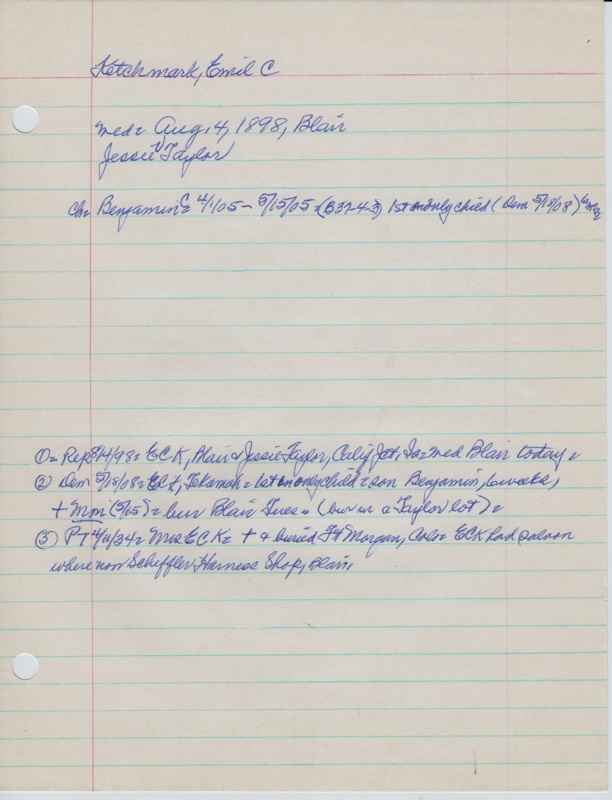 Ketchmark, Emil C
med= Aug. 4, 1898, Blair
Jessie V Taylor
Ch= Benjamin C= 4/1/05 - 5/15/05 = (B37-4-3) 1st only child (Dem 5/18/08)
①= Rep 8/4/98= ECK, Blair & Jessie Taylor, Calif Jct, Ia= med Blair today=
② Dem 5/18/08= ECK, Tekamah= 1st only child= son Benjamin, 6 weeks,
+ Mon (5/15)= bur Blair Tues= (bur in a Taylor lot)=
③ PT 4/11/34= Mrs ECK= + & buried Ft Morgan, Colo= ECK had saloon
where now Scheffler Harness Shop, Blair,